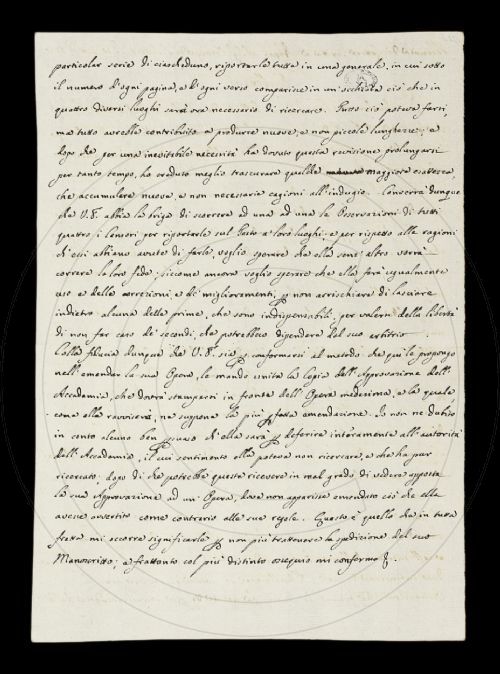 particolar serie di ciascheduno, riportarle tutte in una generale, in cui sotto
il numero d'ogni pagina, e d'ogni verso comparisse in un'occhiata ciò che in
quattro diversi luoghi sarà ora necessario di ricercare. Tutto ciò poteva farsi,
ma tutto avrebbe contribuito a produrre nuove, e non piccole lunghezze; e
dopo che per una inevitabile necessità ha dovuto questa revisione prolungarsi
per tanto tempo, ho creduto meglio trascurare qualche maggiore esattezza,
che accumulare nuove, e non necessarie cagioni all'indugio. Converrà dunque
che V.S. abbia la briga di scorrere ad una ad una le Osservazioni di tutti
quattro i Censori per riportarle sul Testo a' loro luoghi; e per rispetto alle ragioni
di cui abbiano avute di farle, voglio sperare che ella senz'altro vorrà
correre la loro fede; siccome ancora voglio sperare che ella farà egualmente
uso e delle correzioni, e de' miglioramenti, per non arrischiare di lasciare
indietro alcuna delle prime, che sono indispensabili, per valersi della libertà
di non far caso de' secondi, che potrebbero dipendere dal suo arbitrio.
Colla fiducia dunque che V.S. sia per conformarsi al metodo che qui le propongo
nell'emendar la sua Opera, le mando unita la Copia dell'Approvazione dell'
Accademia, che dovrà stamparsi in fronte dell'Opera medesima, e la quale,
come ella ravviserà, ne suppone la più esatta emendazione. Io non ne dubito
in conto alcuno ben persuaso ch'ella sarà per deferire interamente all'autorità
dell'Accademia, il cui sentimento ella poteva non ricercare, e che ha pur
ricercato; dopo di che potrebbe questa ricevere in mal grado di vedere apposta
la sua Approvazione ad un'Opera, dove non apparisse emendato ciò che ella
avesse avvertito come contrario alle sue regole. Questo è quello che in tutta
fretta mi occorre significarle per non più trattenere la spedizione del suo
Manoscritto; e frattanto col più distinto ossequio mi confermo